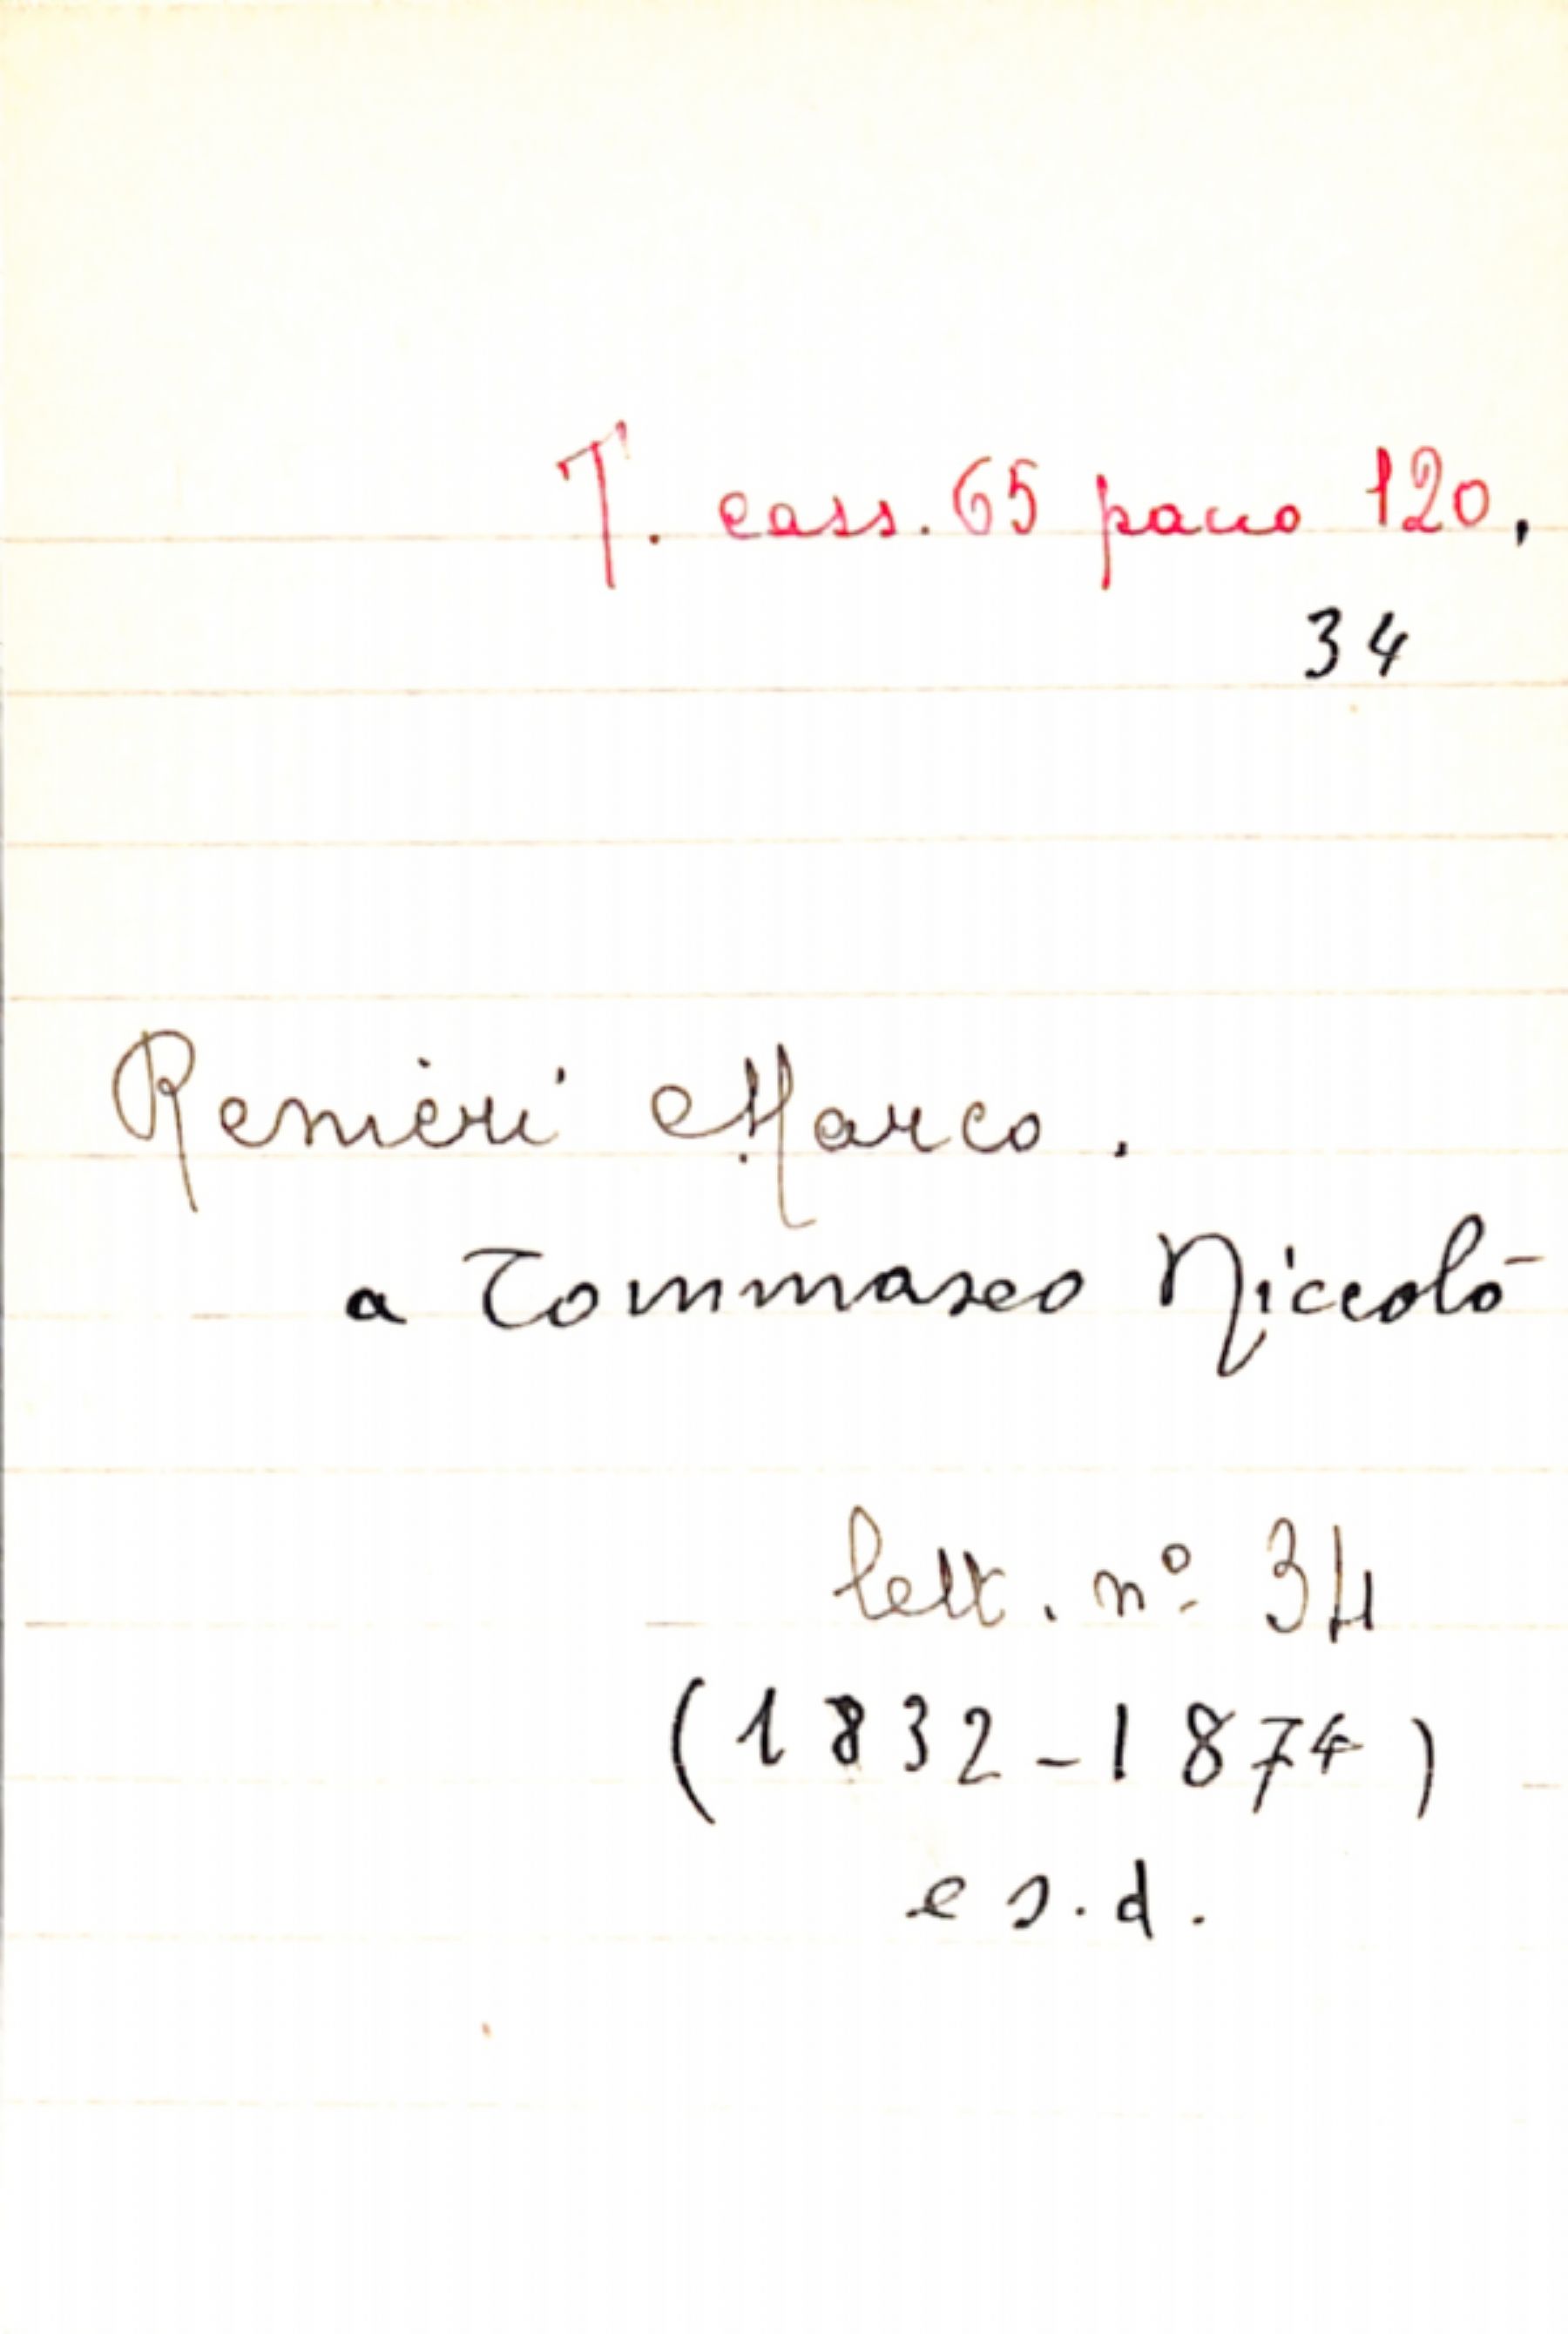 T. cass. 65 pacco 120,
34
Renieri Marco.
a Tommaseo Niccolò
lett. nº 34
(1832-1874)
e s.d.